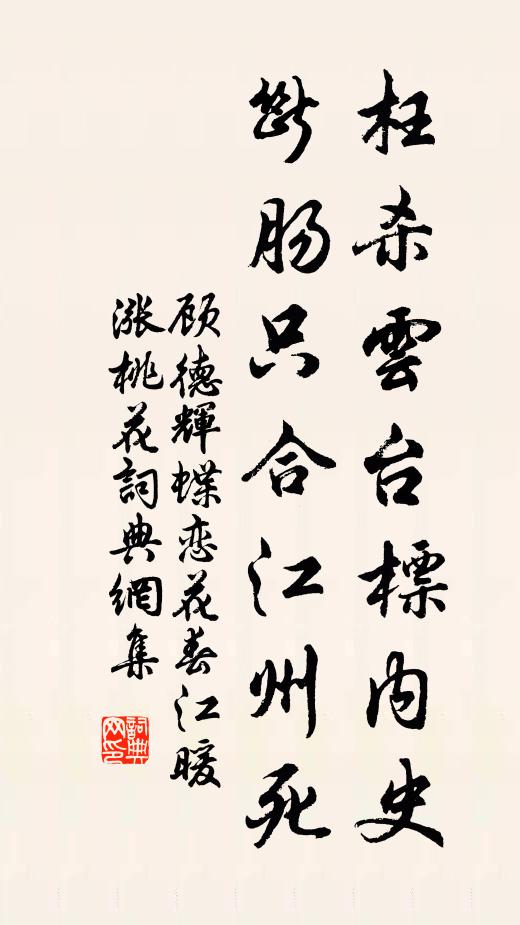 枉杀雲台標内史
断肠只合江州死
顾德輝蝶恋花春江暖
涨桃花詞典網集
詞典网印